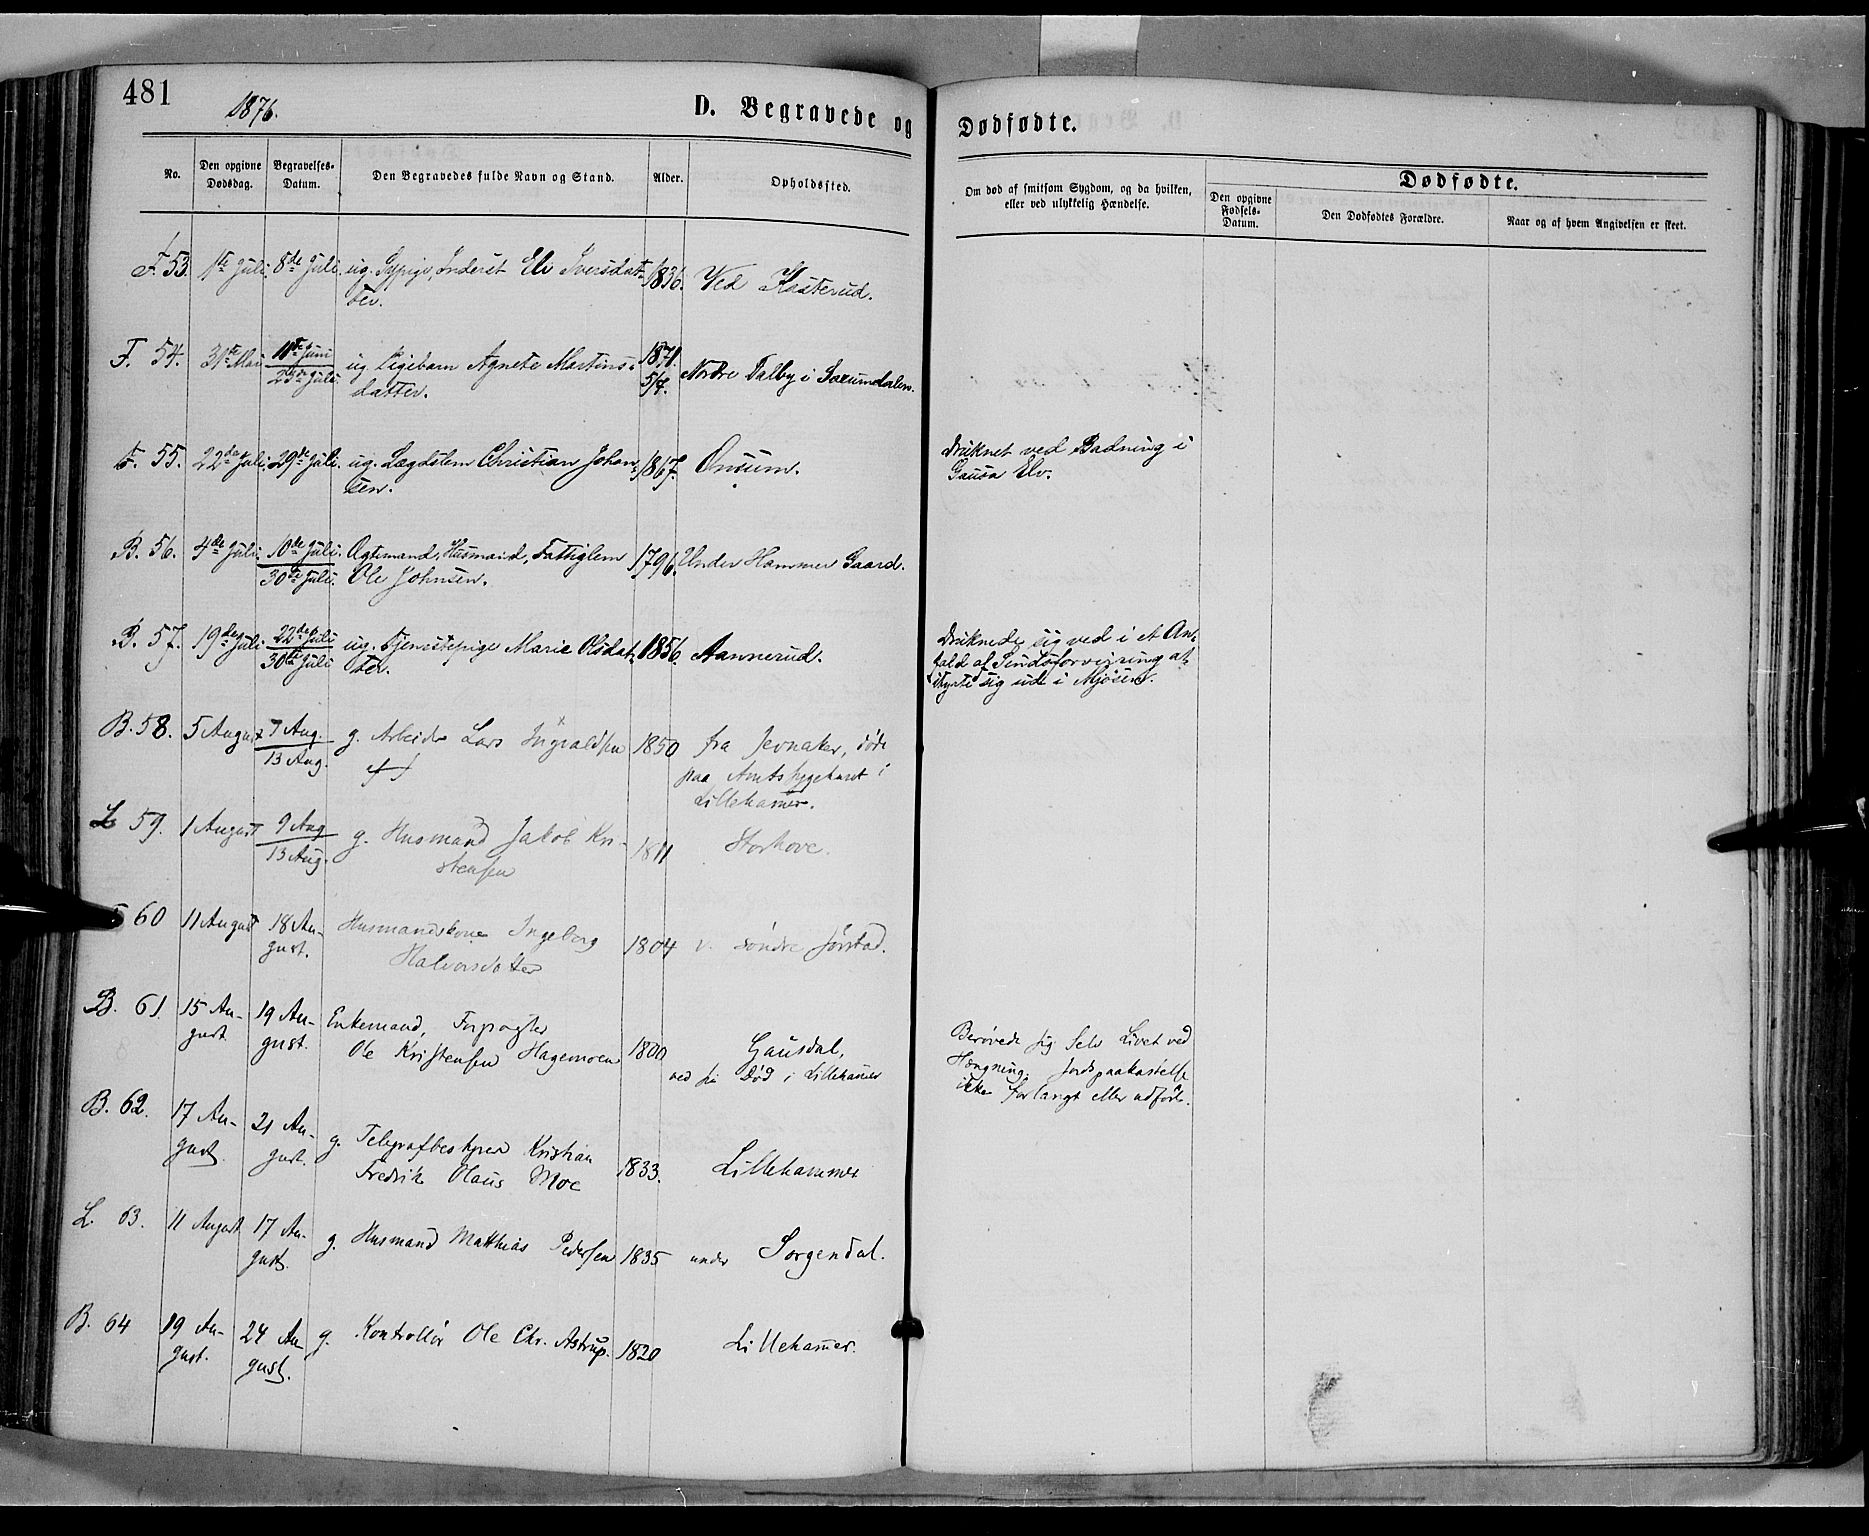 481
1876.
D. Begravede og Dødfødte.
No.
Den opgivne Dødsdag.
Begravelses-Datum.
Den Begravedes fulde Navn og Stand.
Alder.
Opholdssted.
Om død af smitsom Sygdom, og da hvilken, eller ved ulykkelig Hændelse.
Dødfødte.
Den opgivne Fødsels-Datum.
Den Dødfødtes Forældre.
Naar og af hvem Angivelsen er skeet.
F. 53. 1ste Juli 8de Juli. ug. Sypige, Inderst Eli Iversdat- 1836. Ved Kasterud.
ter.
F. 54. 31te Mai 11te Juni ug. Pigebarn Agnete Martins- 1871. Nordre Dalby i Saxumdalen.
23de Juli. datter. 5/4.
F. 55. 22de Juli. 29de Juli. ug. Lægdslem Christian Johan- 1867. Onsum. Druknet ved Badning i
sen. Gausa Elv.
B. 56. 4de Juli. 10de Juli. Ægtemand, Husmand, Fattiglem 1796. Under Hammer Gaard.
30te Juli. Ole Johnsen.
B. 57. 19de Juli 22de Juli ug. Tjenestepige Marie Olsdat- 1856. Aannerud. Druknede sig ved i et An-
30te Juli ter. fald af Sindsforvirring at
styrte sig ud i Mjøsen.
B. 58. 5 August 7 Aug. g. Arbeider Lars Ingvaldsen 1850 fra Jevnaker, døde
13 Aug. paa Amtssygehuset i
Lillehamer.
L 59. 1 August 9 Aug g. Husmand Jakob Kri- 1811 Storhove.
13 Aug. stensen
60 11 August 18 Au- Husmandskone Ingeborg 1804 v. søndre Jørstad.
gust. Halvorsdatter
B. 61. 15 Au- 19 Au- Enkemand, Forpagter
gust gust. Ole Kristensen Hagemoen 1800 Gausdal,
ved sin Død i Lillehamer
Berøvede sig selv Livet ved
Hængning. Jordspaakastelse
ikke forlangt eller udført.
B. 62. 17 Au- 21 Au- g. Telegrafbestyrer Kristian
gust. gust. Fredrik Olaus Moe 1833. Lillehammer
L. 63. 11 August 17 Au- g. Husmand Matthias Pedersen 1835 under Sorgendal.
gust.
B. 64 19 Au- 24 Au g. Kontrollør Ole Chr. Astrup. 1820 Lillehamer.
gust. gust.